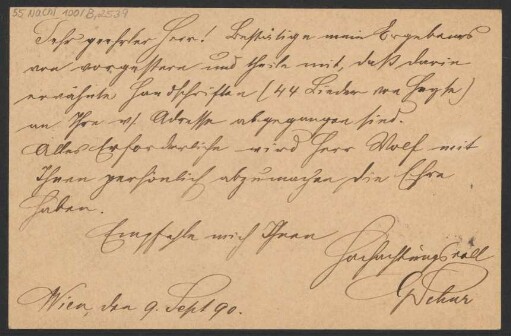 55.Nachl. 100/B,2539
Sehr geehrter Herr! Bestätige mein Ergebenes
von vorgestern und theile mit, daß darin
erwähnte Handschriften (44 Lieder von Heyse)
an Ihre w/ Adresse abgegangen sind.
Alles Erforderliche wird Herr Wolf mit
Ihnen persönlich abzumachen die Ehre
haben.
Empfehle mich Ihnen
Hochachtungsvoll
G Schur
Wien, den 9. Sept 90.